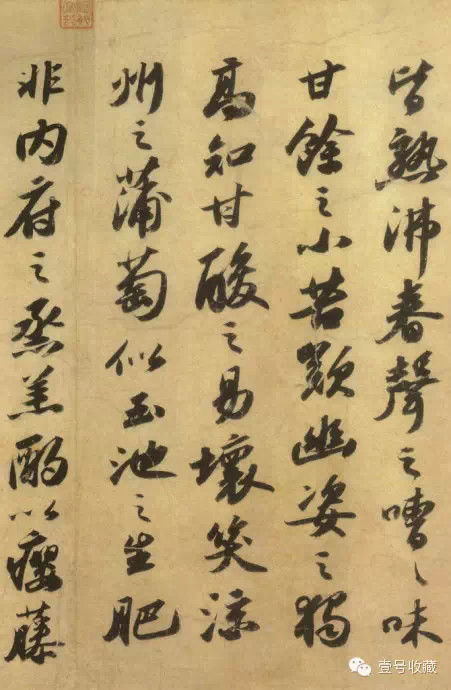 皆熟沸舂聲之嘈〻味
甘餘之小苦歎幽姿之獨
高知甘酸之易壞笑涼
州之蒲萄似玉池之生肥
非内府之烝羔酌以癭藤
壹号收藏